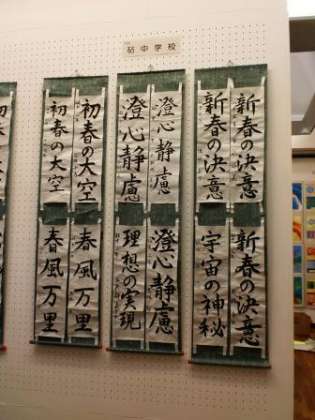 砧中学校
新春の決意
新春の決意
澄心静慮
澄心静慮
初春の大空
初春の大空
新春の決意
宇宙の神秘
澄心静慮
理想の実現
春風万里
春風万里